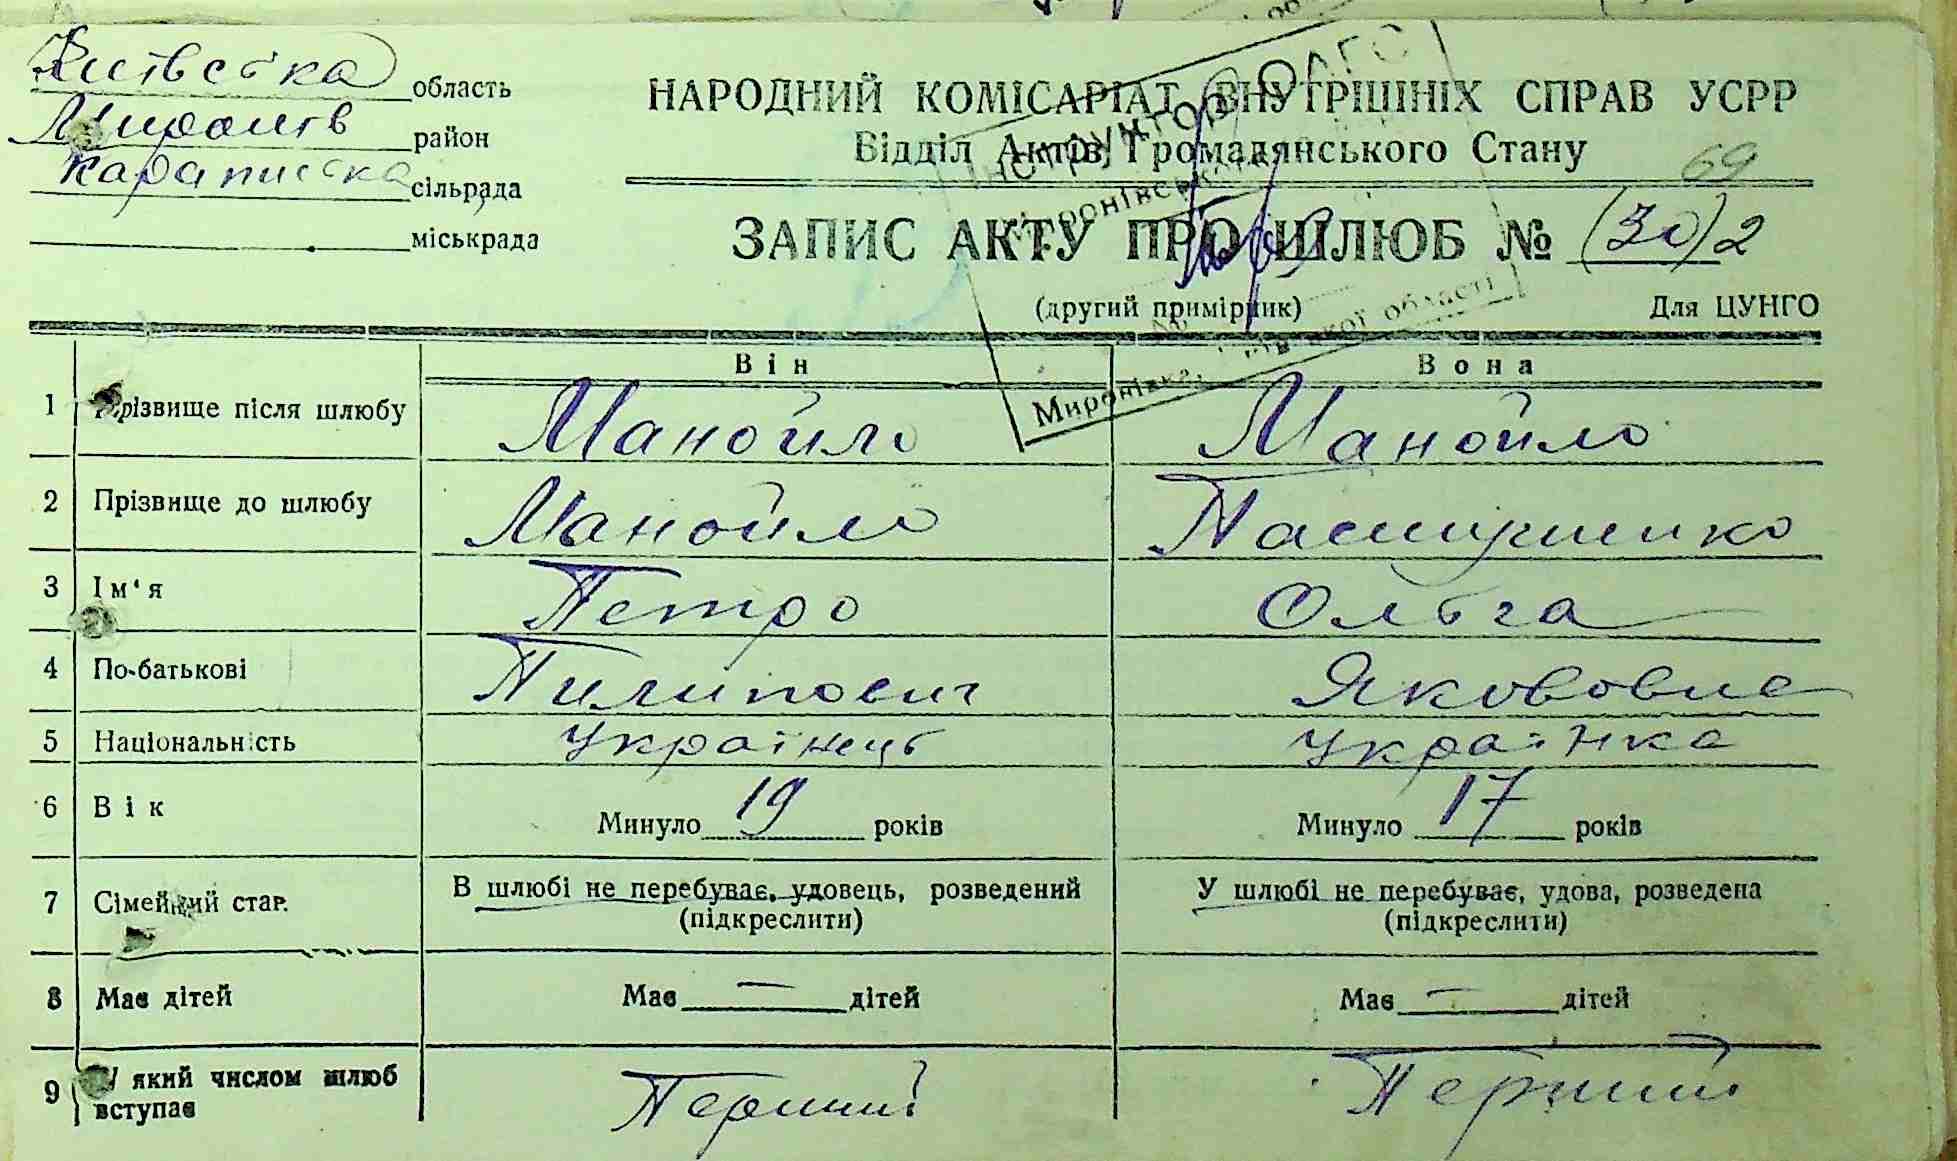 Київська область
Миронів район
Караписька сільрада
міськрада
НАРОДНИЙ КОМІСАРІАТ ВНУТРІШНІХ СПРАВ УСРР
Відділ Актів Громадянського Стану
69
ЗАПИС АКТУ ПРО ШЛЮБ № (30) 2
(другий примірник) Для ЦУНГО
Він Вона
1 Прізвище після шлюбу Манойло Манойло
2 Прізвище до шлюбу Манойло
3 Ім'я Петро Ольга
4 По-батькові Пилипович Якововна
5 Національність Українець Українка
6 Вік Минуло 19 років Минуло 17 років
7 Сімейний стан. В шлюбі не перебуває, удовець, розведений У шлюбі не перебуває, удова, розведена
(підкреслити) (підкреслити)
8 Має дітей Має — дітей Має — дітей
9 У який числом шлюб вступає Перший Перший
ІНСТРУКТОР ВАГС
Миронівського
Миронівка, Київської області